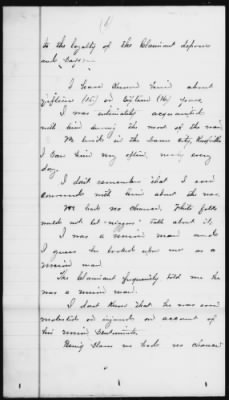 (6)
to the loyalty of the Claimant deposes
and says
I have known him about
fifteen (15) or sixteen (16) years,
I was intimately acquainted
with him during the most of the war
We lived in the same City,
I saw him very often, nearly every
day.
I don't remember that I ever
conversed with him about the war.
We had no chance. White folks
would not let "niggers" talk about it.
I was a union man and
I guess he looked upon me as a
union man.
The Claimant frequently told me he
was a union man.
I dont know that he was ever
molested or injured on account of
his union sentiments.
Being slaves we had no chance